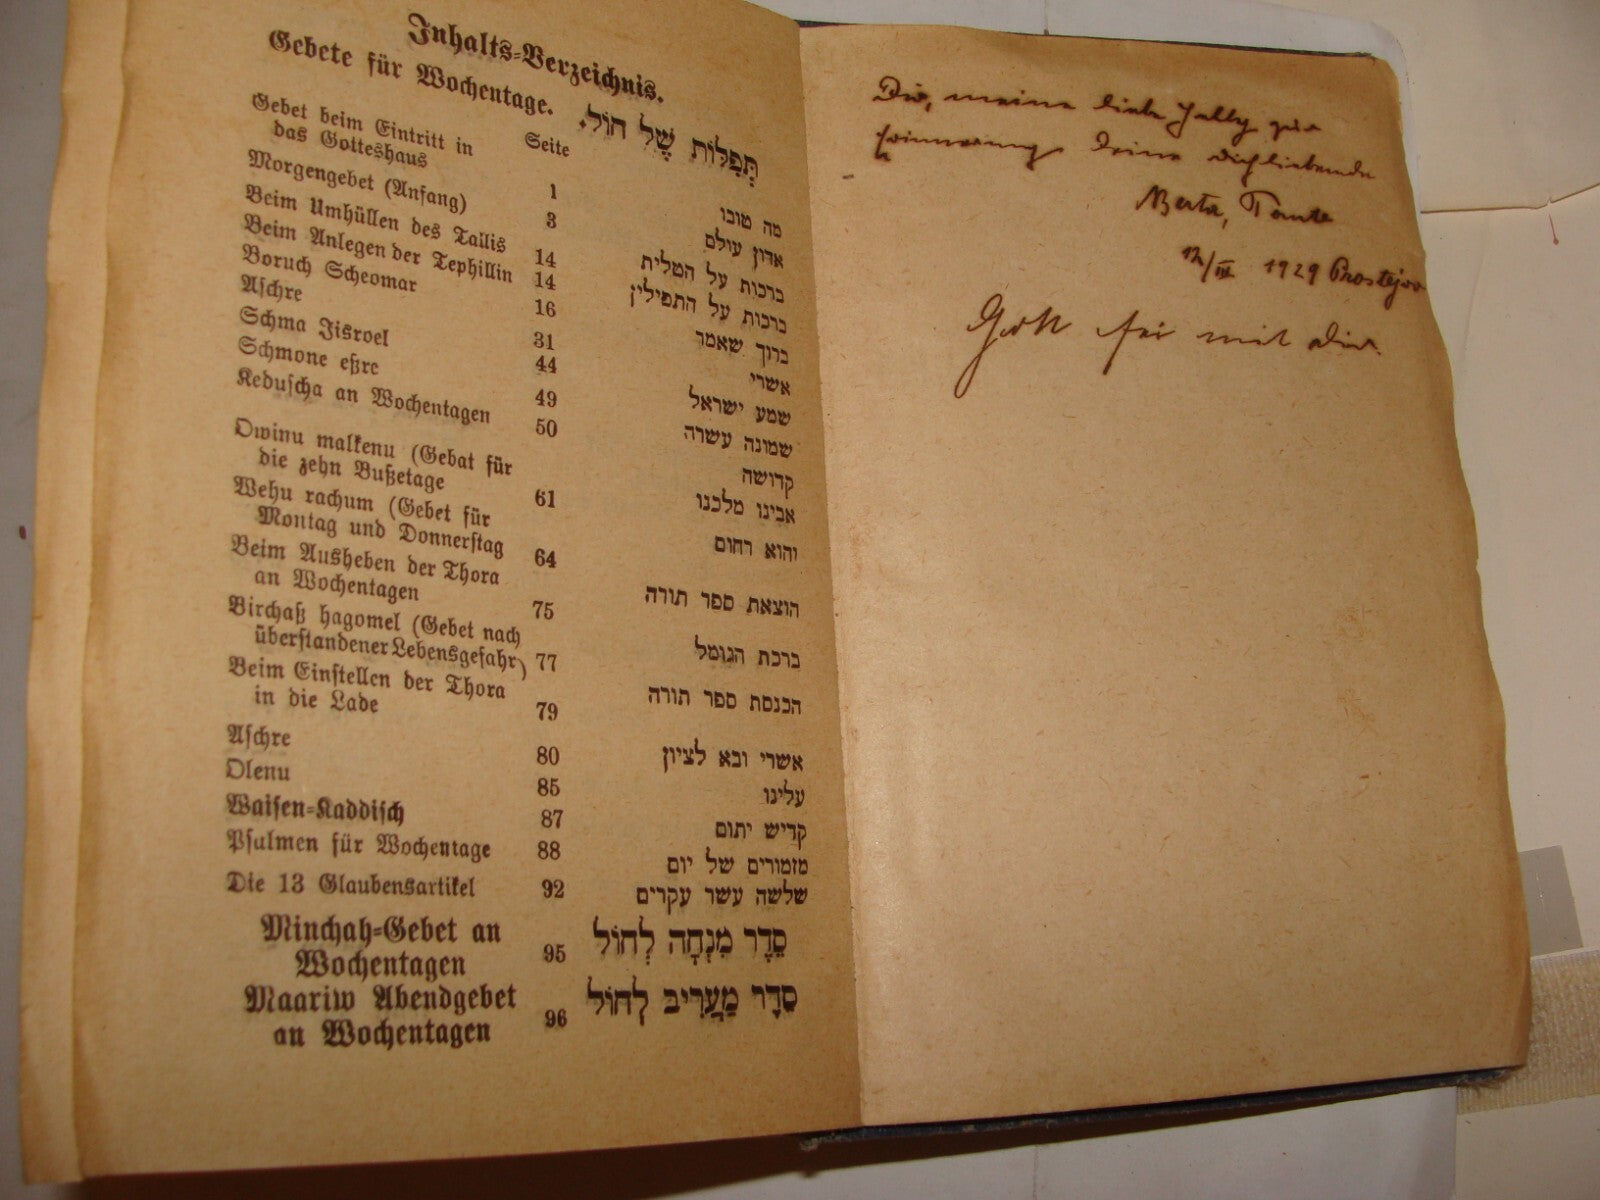 Inhalts-Verzeichnis.
Gebete für Wochentage. תְּפִלּוֹת שֶׁל חוֹל.
Seite
Gebet beim Eintritt in
das Gotteshaus 1 מה טובו
Morgengebet (Anfang) 3 אדון עולם
Beim Umhüllen des Tallis 14 ברכות על הטלית
Beim Anlegen der Tephillin 14 ברכות על התפילין
Boruch Scheomar 16 ברוך שאמר
Aschre 31 אשרי
Schma Jisroel 44 שמע ישראל
Schmone eßre 49 שמונה עשרה
Keduscha an Wochentagen 50 קדושה
Owinu malkenu (Gebat für
die zehn Bußetage 61 אבינו מלכנו
Wehu rachum (Gebet für
Montag und Donnerstag 64 והוא רחום
Beim Ausheben der Thora
an Wochentagen 75 הוצאת ספר תורה
Birchaß hagomel (Gebet nach
überstandener Lebensgefahr) 77 ברכת הגומל
Beim Einstellen der Thora
in die Lade 79 הכנסת ספר תורה
Aschre 80 אשרי ובא לציון
Olenu 85 עלינו
Waisen-Kaddisch 87 קדיש יתום
Psalmen für Wochentage 88 מזמורים של יום
Die 13 Glaubensartikel 92 שלשה עשר עקרים
Minchah-Gebet an
Wochentagen 95 סֵדֶר מִנְחָה לְחוֹל
Maariw Abendgebet
an Wochentagen 96 סֵדֶר מַעֲרִיב לְחוֹל
Dir, meine liebe Jally zur
Erinnerung deine dichliebende
Berta, Tante
12/III 1929 Prostejov
Gott sei mit dir.